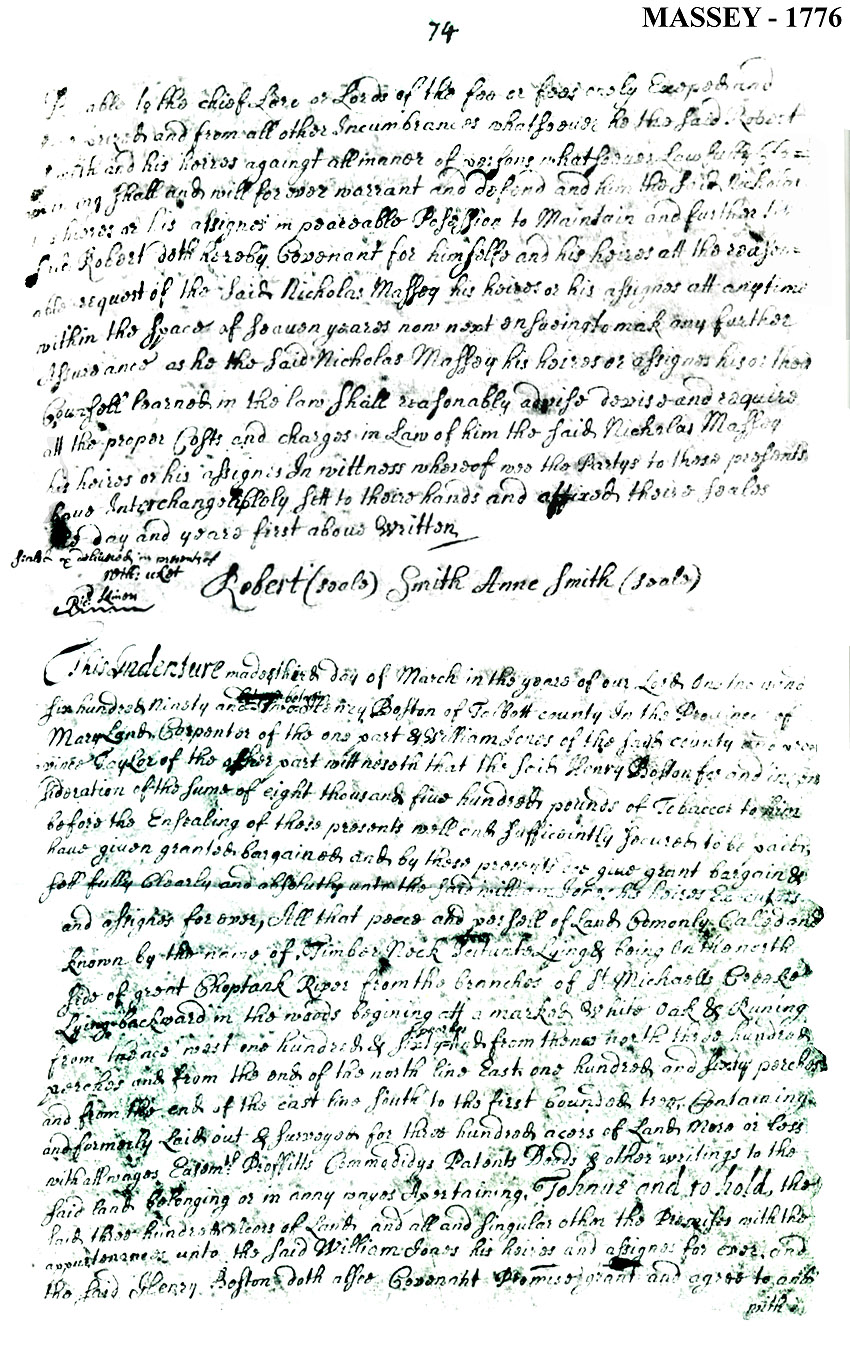 MASSEY - 1776
74
able to the chief Lord or Lords of the fee or fees only Excepted and
and from all other Incumbrances whatsoever he the said Robert
Smith and his heires against all maner of persons whatsoever Lawfully
shall and will for ever warrant and defend and him the said Nicholas
his heires or his assignes in peaceable Possession to Maintain and further the
said Robert doth hereby Covenant for himselfe and his heires att the reason=
able request of the said Nicholas Massey his heires or his assignes att anytime
within the space of seaven yeares now next ensueing to mak any further
Assureance as he the said Nicholas Massey his heires or assignes his or their
Counsell learned in the law shall reasonably advise devise and require
att the proper Costs and charges in Law of him the said Nicholas Massey
his heires or his assignes In wittness whereof wee the Partys to these presents
have Interchangeablely sett to theire hands and affixed theire seales
the day and yeare first above written
Sealed & delivered in presents of
Robert (seale) Smith Anne Smith (seale)
This Indenture made third day of March in the yeare of our Lord One
six hundred Ninety and Henry Boston of Talbott county In the Province of
Mary Land Carpenter of the one part & William Jones of the said county and
Taylor of the other part wittneseth that the said Henry Boston for and in con
sideration of the sume of eight thousand five hundred pounds of Tobaccor to him
before the Ensealing of these presents well and sufficointly secured to be paid
have given granted bargained and by these presents doe give grant bargain &
sell fully Clearly and absolutly unto the said William Jones his heires
and assignes for ever, All that peece and persell of Land Comonly Called and
known by the name of Timber Neck Scituate Lying & being On the north
side of great Choptank River from the branches of St Michaells Creeke
Lying backward in the woods begining att a marked White Oak & Runing
from thence west one hundred & sixty and from thence north three hundred
perches
perches and from the end of the north line East one hundred and sixty perches
and from the end of the east line south to the first bounded tree, Containing
and formerly Laid out & surveyed for three hundred acers of Land More or less
with all wayes Easemts Proffitts Commodidys Patents Deeds & other writings to the
said land belonging or in anny wayes Apertaining, To have and to hold, the
said three hundred Acers of Land and all and singular other the Premises with the
appurtenances unto the said William Jones his heires and assignes for ever, and
the said Henry Boston doth allsoe Covenant Promise grant and agree to and
with